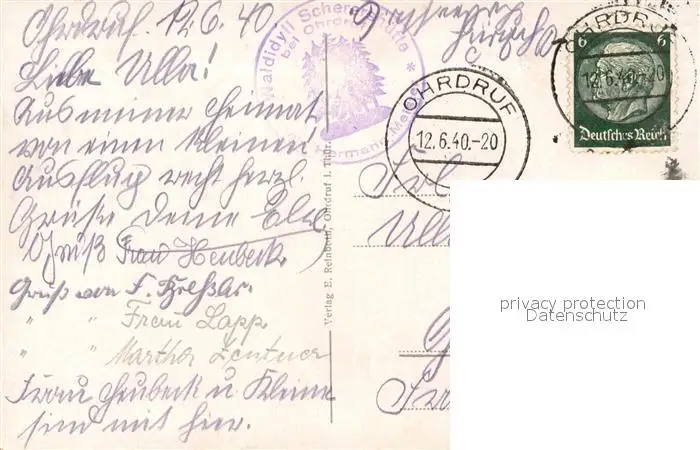 Ohrdruf. 12.6.40
Liebe Ulla!
Aus meiner Heimat
von einen kleinen
Ausflug recht herzl.
Grüße Deine Elli
Gruß Frau Heubeck
Gruß von F.
" " Frau Lapp
" " Martha Zentner
Frau Heubeck u Kleine
sind mit hier.
Waldidyll Scherershütte
bei Ohrdruf
Hermann
Verlag E. Reinboth, Ohrdruf i. Thür.
OHRDRUF
12.6.40.-20
OHRDRUF
12.6.40.-20
6 6
Deutsches Reich
Frl.
privacy protection
Datenschutz